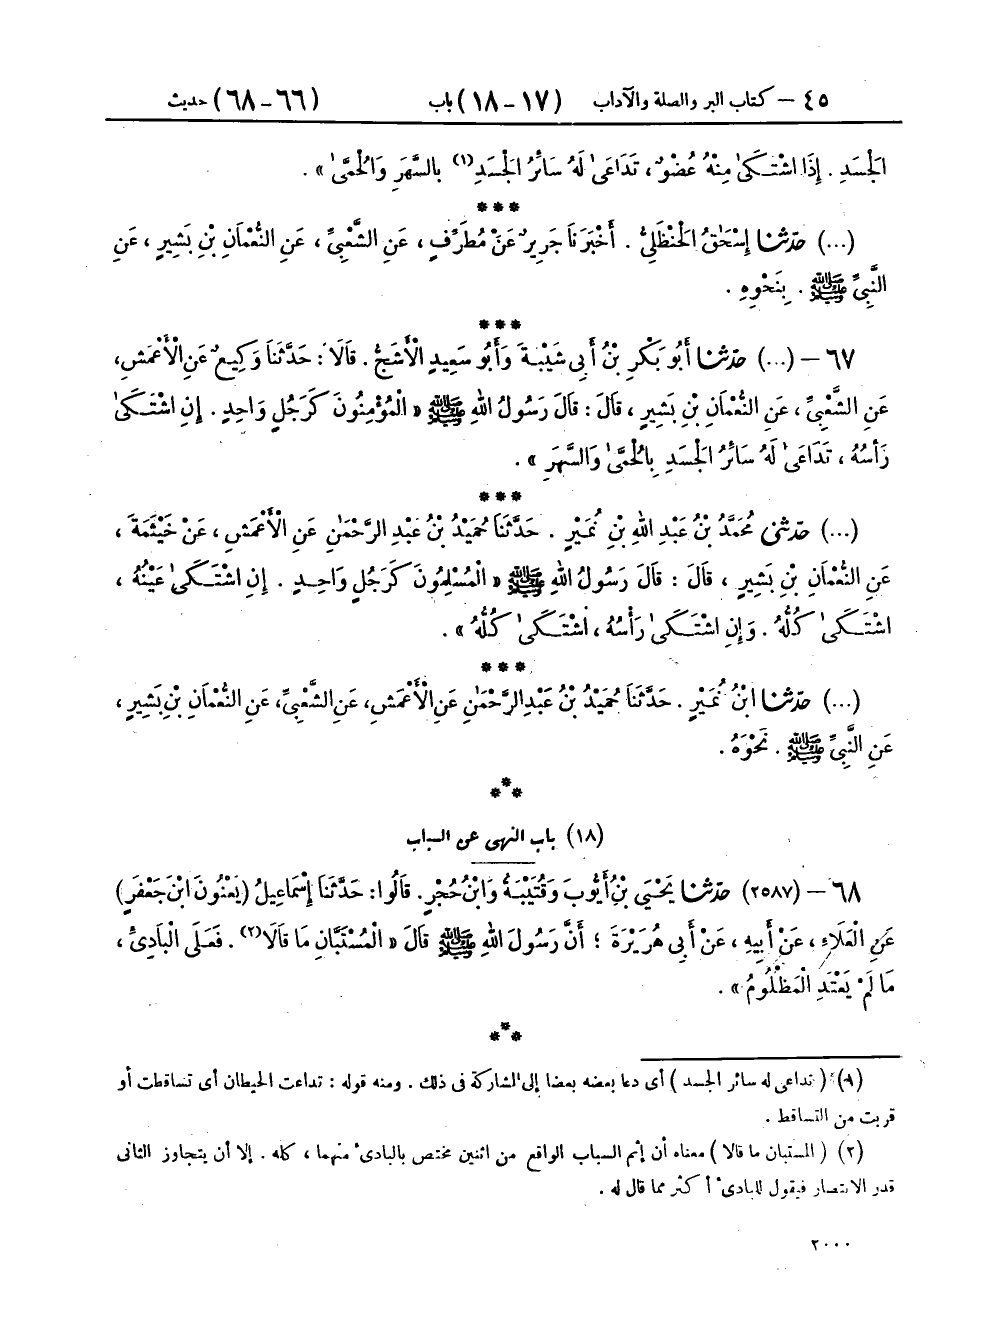 ٤٥ – كتاب البر والصلة والآداب (١٧ – ١٨) باب (٦٦ – ٦٨) حديث
الْجَسَدِ . إِذَا اشْتَكَىٰ مِنْهُ عُضْوٌ، تَدَاعَىٰ لَهُ سَائِرُ الْجَسَدِ(١) بِالسَّهَرِ وَالْحُمَّىٰ » .
***
(...) حدّثنا إِسْحَٰقُ الْحَنْظَلِيُّ . أَخْبَرَنَا جَرِيرٌ عَنْ مُطَرِّفٍ ، عَنِ الشَّعْبِيِّ ، عَنِ النُّعْمَانِ بْنِ بَشِيرٍ ، عَنِ
النَّبِيِّ ﷺ . بِنَحْوِهِ .
***
٦٧ – (...) حدّثنا أَبُو بَكْرِ بْنُ أَبِي شَيْبَةَ وَأَبُو سَعِيدٍ الْأَشَجُّ . قَالَا : حَدَّثَنَا وَكِيعٌ عَنِ الْأَعْمَشِ،
عَنِ الشَّعْبِيِّ ، عَنِ النُّعْمَانِ بْنِ بَشِيرٍ ، قَالَ : قَالَ رَسُولُ اللهِ ﷺ « الْمُؤْمِنُونَ كَرَجُلٍ وَاحِدٍ . إِنِ اشْتَكَىٰ
رَأْسُهُ ، تَدَاعَىٰ لَهُ سَائِرُ الْجَسَدِ بِالْحُمَّىٰ وَالسَّهَرِ » .
***
(...) حدّثني مُحَمَّدُ بْنُ عَبْدِ اللهِ بْنِ نُمَيْرٍ . حَدَّثَنَا حُمَيْدُ بْنُ عَبْدِ الرَّحْمَٰنِ عَنِ الْأَعْمَشِ ، عَنْ خَيْثَمَةَ ،
عَنِ النُّعْمَانِ بْنِ بَشِيرٍ ، قَالَ : قَالَ رَسُولُ اللهِ ﷺ « الْمُسْلِمُونَ كَرَجُلٍ وَاحِدٍ . إِنِ اشْتَكَىٰ عَيْنُهُ ،
اشْتَكَىٰ كُلُّهُ . وَإِنِ اشْتَكَىٰ رَأْسُهُ ، اشْتَكَىٰ كُلُّهُ » .
***
(...) حدّثنا ابْنُ نُمَيْرٍ . حَدَّثَنَا حُمَيْدُ بْنُ عَبْدِ الرَّحْمَٰنِ عَنِ الْأَعْمَشِ، عَنِ الشَّعْبِيِّ، عَنِ النُّعْمَانِ بْنِ بَشِيرٍ ،
عَنِ النَّبِيِّ ﷺ . نَحْوَهُ .
***
(١٨) باب النهى عن السباب
٦٨ – (٢٥٨٧) حدّثنا يَحْيَىٰ بْنُ أَيُّوبَ وَقُتَيْبَةُ وَابْنُ حُجْرٍ. قَالُوا : حَدَّثَنَا إِسْمَاعِيلُ (يَعْنُونَ ابْنَ جَعْفَرٍ)
عَنِ الْعَلَاءِ ، عَنْ أَبِيهِ ، عَنْ أَبِي هُرَيْرَةَ ؛ أَنَّ رَسُولَ اللهِ ﷺ قَالَ « الْمُسْتَبَّانِ مَا قَالَا(٢) . فَعَلَى الْبَادِئِ ،
مَا لَمْ يَعْتَدِ الْمَظْلُومُ » .
***
(١) ( تداعى له سائر الجسد ) أى دعا بعضه بعضا إلى المشاركة فى ذلك . ومنه قوله : تداعت الحيطان أى تساقطت أو
قربت من التساقط .
(٢) ( المستبان ما قالا ) معناه أن إثم السباب الواقع من اثنين مختص بالبادئ منهما ، كله . إلا أن يتجاوز الثانى
قدر الانتصار فيقول للبادئ أكثر مما قال له .
٢٠٠٠